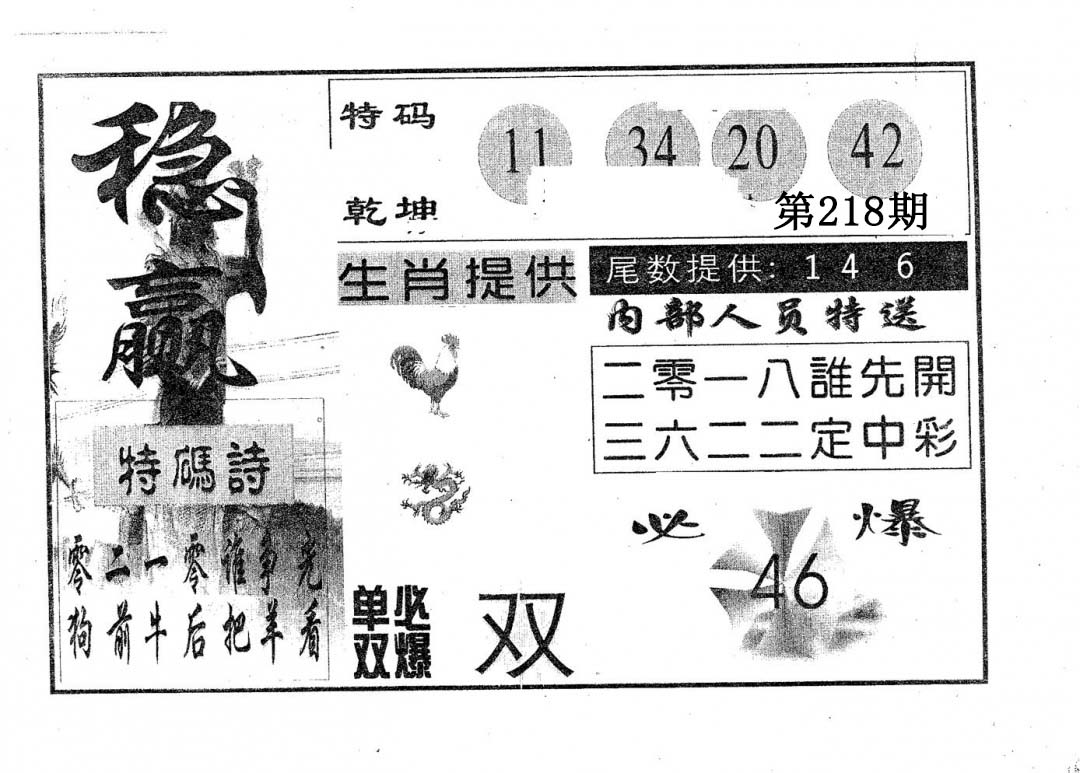 稳赢
特码
乾坤
11 34 20 42
第218期
生肖提供
尾数提供: 1 4 6
内部人员特送
二零一八誰先開
三六二二定中彩
特碼詩
零二一零谁争光
狗前牛后把羊看
必爆
46
单双
必爆
双